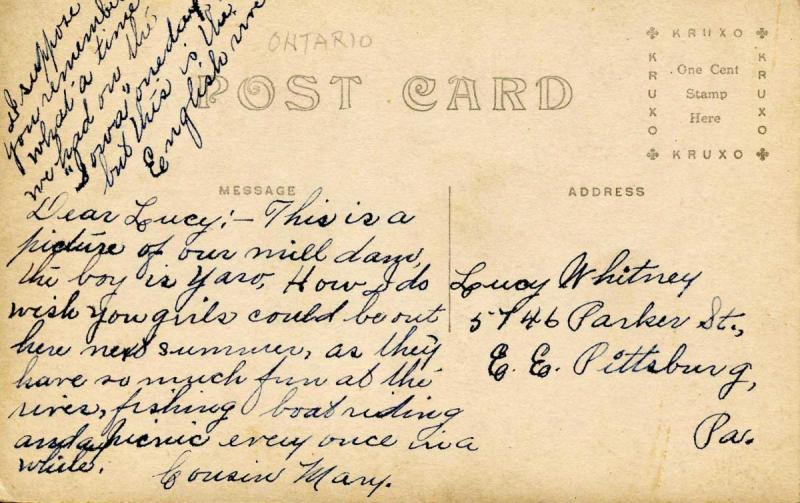 I suppose
you remember
what a time
we had on the
"Iowa" one day
but this is the
English
ONTARIO
POST CARD
KRUXO
KRUXO
KRUXO
KRUXO
One Cent
Stamp
Here
MESSAGE
ADDRESS
Dear Lucy:— This is a
picture of our mill dam,
the boy is Yaro. How I do
wish you girls could be out
here next summer, as they
have so much fun at the
river, fishing boat riding
and a picnic every once in a
while.
Cousin Mary.
Lucy Whitney
5746 Parker St.,
E. E. Pittsburg,
Pa.